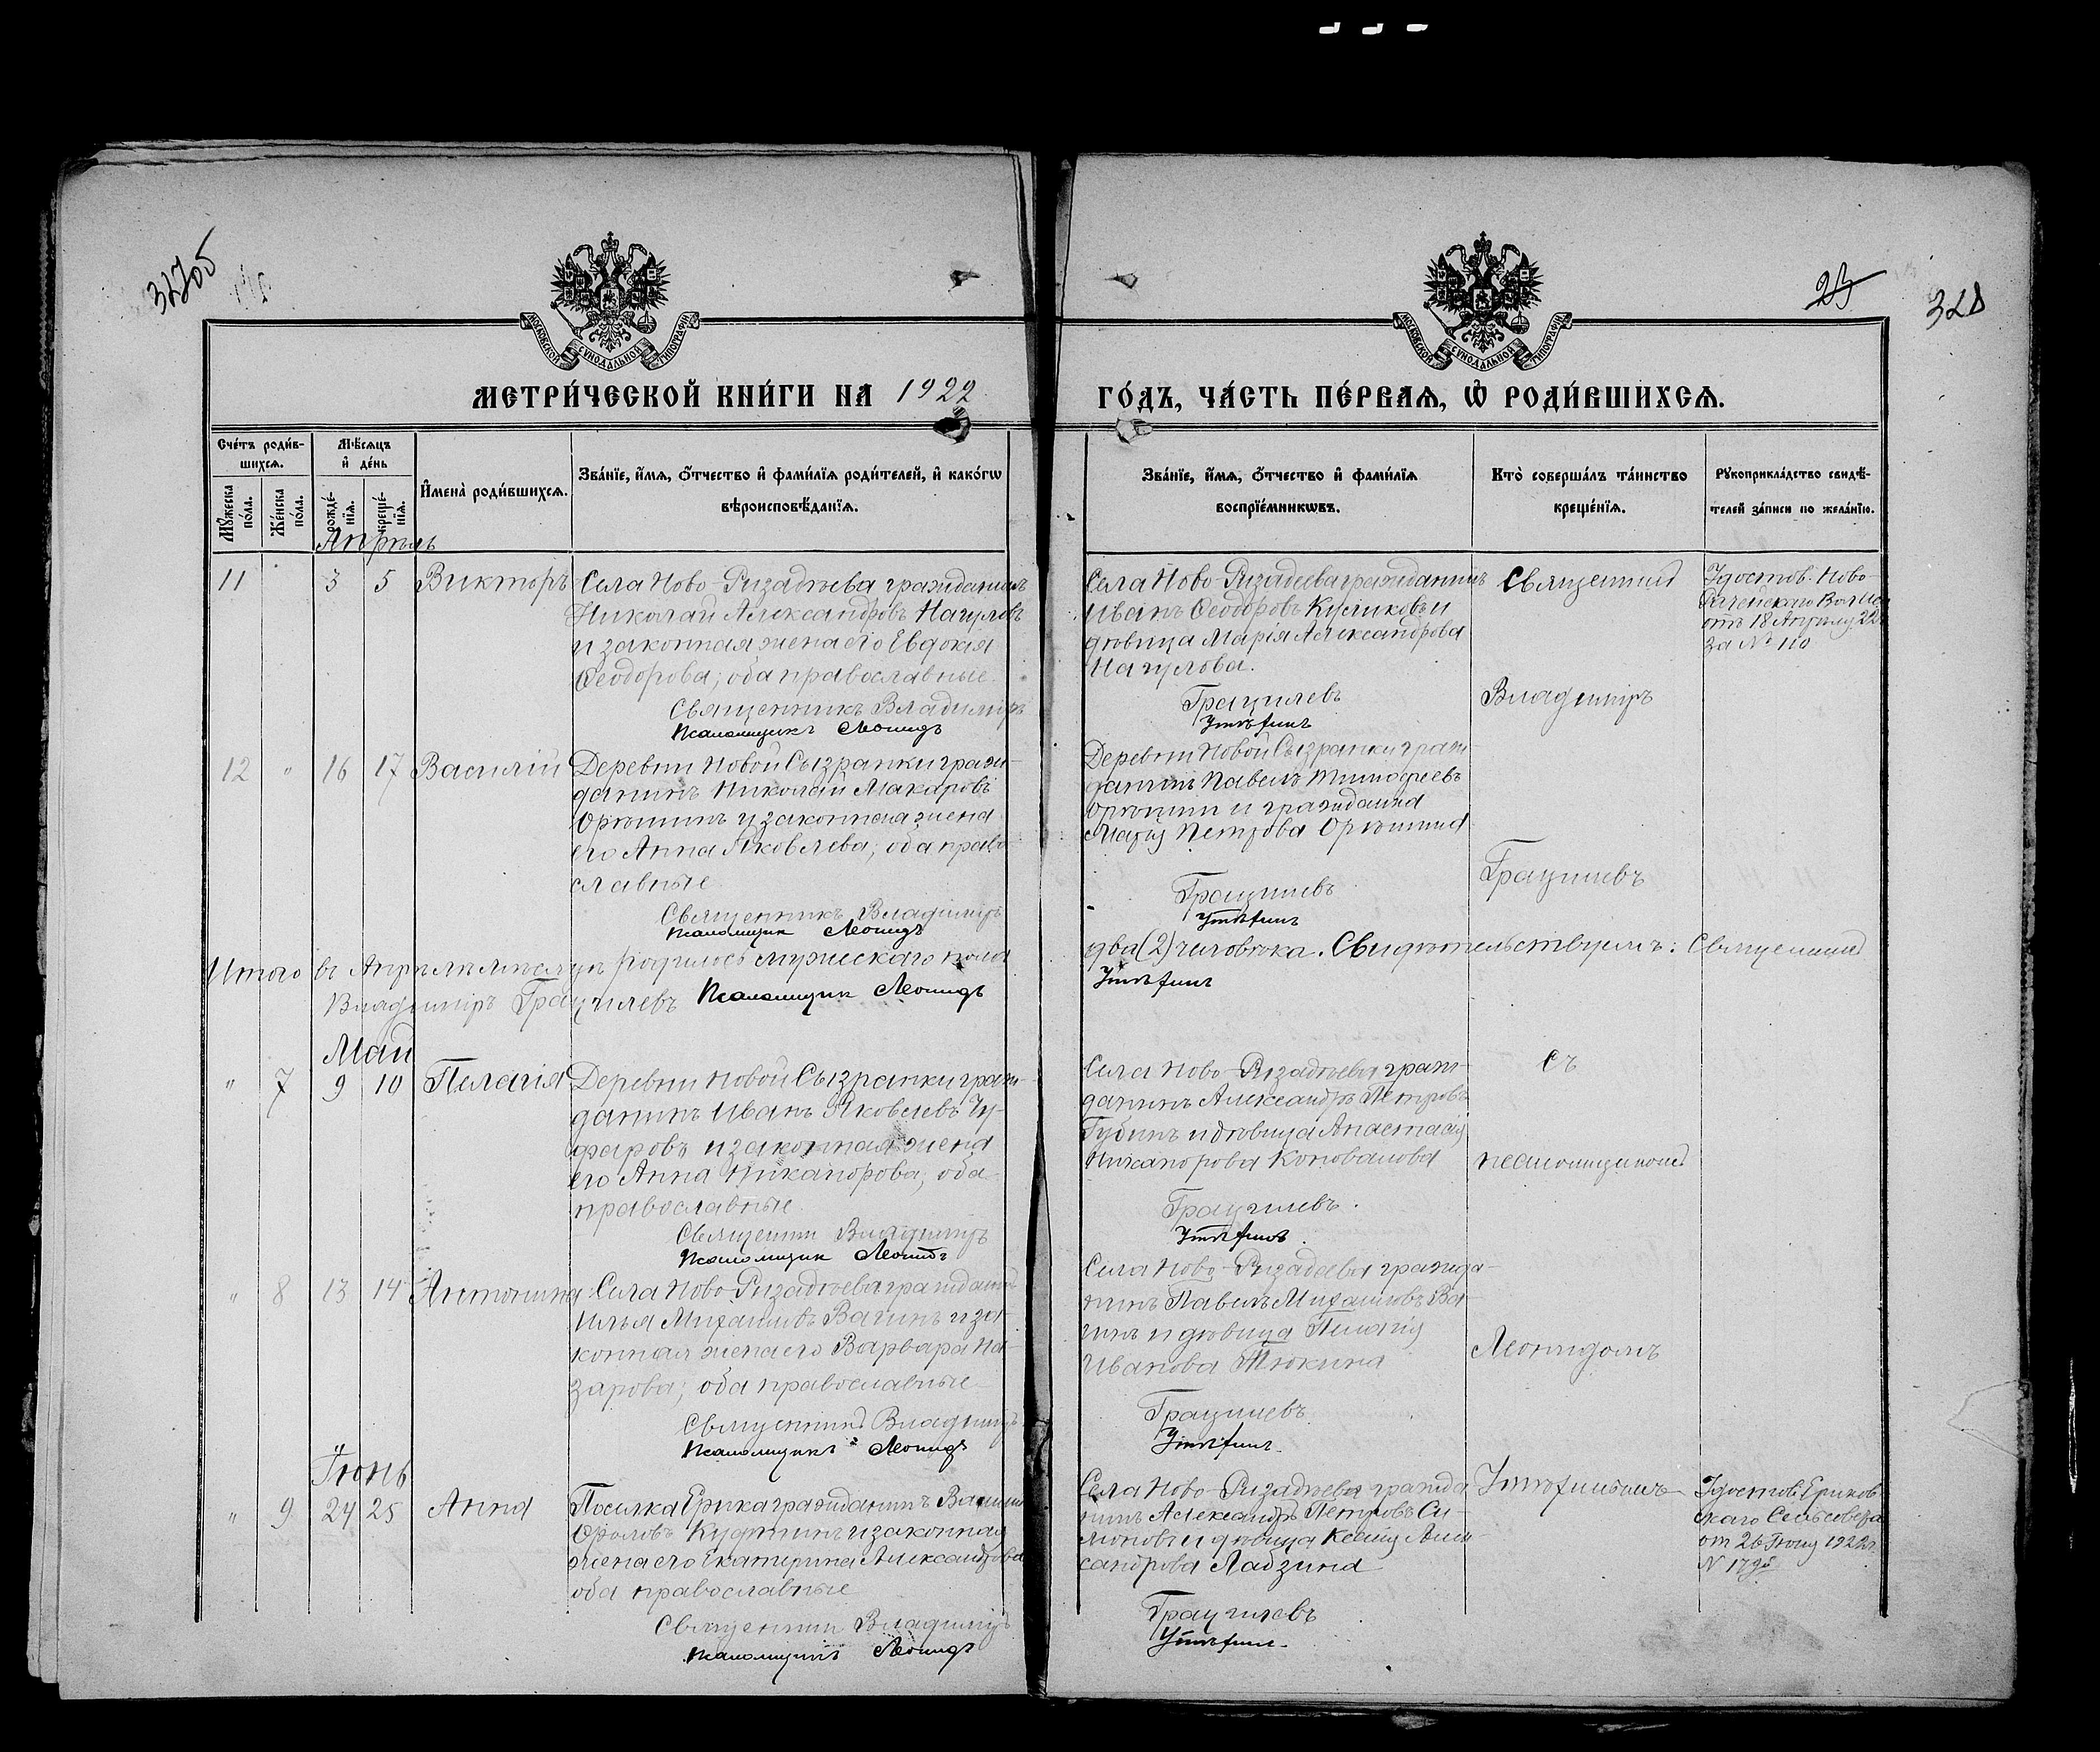 327об
23
328
МОСКОВСКОЙ СУНОДАЛЬНОЙ ТИПОГРАФІИ
МОСКОВСКОЙ СУНОДАЛЬНОЙ ТИПОГРАФІИ
МЕТРИ́ЧЕСКОЙ КНИ́ГИ НА 1922
ГО́ДЪ, ЧА́СТЬ ПЕ́РВАѦ, Ѡ҆ РОДИ́ВШИХСѦ.
Сче́тъ роди́в-
шихсѧ.
Мѣ́сѧцъ
и҆ де́нь
Мꙋ́жеска
по́ла.
Же́нска
по́ла.
рожде́-
нїѧ.
креще́-
нїѧ.
И҆мена̀ роди́вшихсѧ.
Зва́нїе, и҆́мѧ, ѻ҆́тчество и҆ фами́лїѧ роди́телей, и҆ како́гѡ
вѣроисповѣ́данїѧ.
Зва́нїе, и҆́мѧ, ѻ҆́тчество и҆ фами́лїѧ
воспрїе́мникѡвъ.
Кто̀ соверша́лъ та́инство
креще́нїѧ.
Рꙋкоприкла́дство свидѣ́-
телей за́писи по жела́нїю.
Апрѣль
11 3 5 Викторъ
Села Ново-Ризадѣева гражданинъ
Николай Александровъ Нагуловъ
и законная жена его Евдокія
Ѳеодорова; оба православные.
Священникъ Владиміръ
Псаломщикъ Леонидъ
Села Ново-Ризадеева гражданинъ
Иванъ Ѳеодоровъ Куликовъ и
дѣвица Марія Александрова
Нагулова.
Грацилевъ
Утѣхинъ
Священникъ
Владиміръ
Удостов. Ново-
отъ 18 Апрѣля 22
за № 110
12 " 16 17 Василій
Деревни Новой Сызранки граж-
данинъ Николай Макаровъ
Орѣшинъ и законная жена
его Анна Яковлева; оба право-
славные
Священникъ Владиміръ
Псаломщик Леонидъ
Деревни Новой Сызранки граж-
данинъ Павелъ Тимофеевъ
Орѣшин и гражданка
Марія Петрова Орѣшина
Грацилевъ
Утѣхинъ
Грацилевъ
Итого въ Апрѣлѣ мѣсяцѣ родилось мужескаго пола
два (2) человѣка. Свидѣтельствуемъ: Священникъ
Владиміръ Грацилевъ Псаломщик Леонидъ
Утѣхинъ
Май
" 7 9 10 Пелагія
Деревни Новой Сызранки граж-
данинъ Иванъ Яковлевъ Чу-
фаровъ и законная жена
его Анна Никанорова; оба
православные
Священник Владиміръ
Псаломщик Леонидъ
Села Ново-Ризадѣева граж-
данинъ Александръ Петровъ
Губинъ и дѣвица Анастасія
Никанорова Коновалова
Грацилевъ.
Утѣхинъ.
съ
псаломщикомъ
" 8 13 14 Антонина
Села Ново-Ризадѣева гражданинъ
Илья Михаиловъ Вагинъ и за-
конная жена его Варвара На-
зарова; оба православные
Священникъ Владиміръ
Псаломщикъ Леонидъ
Села Ново-Ризадеева гражда-
нинъ Павелъ Михаиловъ Ва-
гинъ и дѣвица Пелагія
Иванова Тюкина
Грацилевъ
Утѣхинъ
Леонидомъ
Іюнь
" 9 24 25 Анна
Поселка Ерика гражданинъ
Фроловъ и законная
жена его Екатерина Александрова
оба православные
Священник Владиміръ
Псаломщикъ Леонидъ
Села Ново-Ризадѣева гражда
нинъ Александръ Петровъ Си-
моновъ и дѣвица Ксенія Алек-
сандрова Ладзина
Грацилевъ
Утѣхинъ
Утѣхинымъ
Удостов. Ериков-
скаго Сельсовета
от 26 Іюня 1922г.